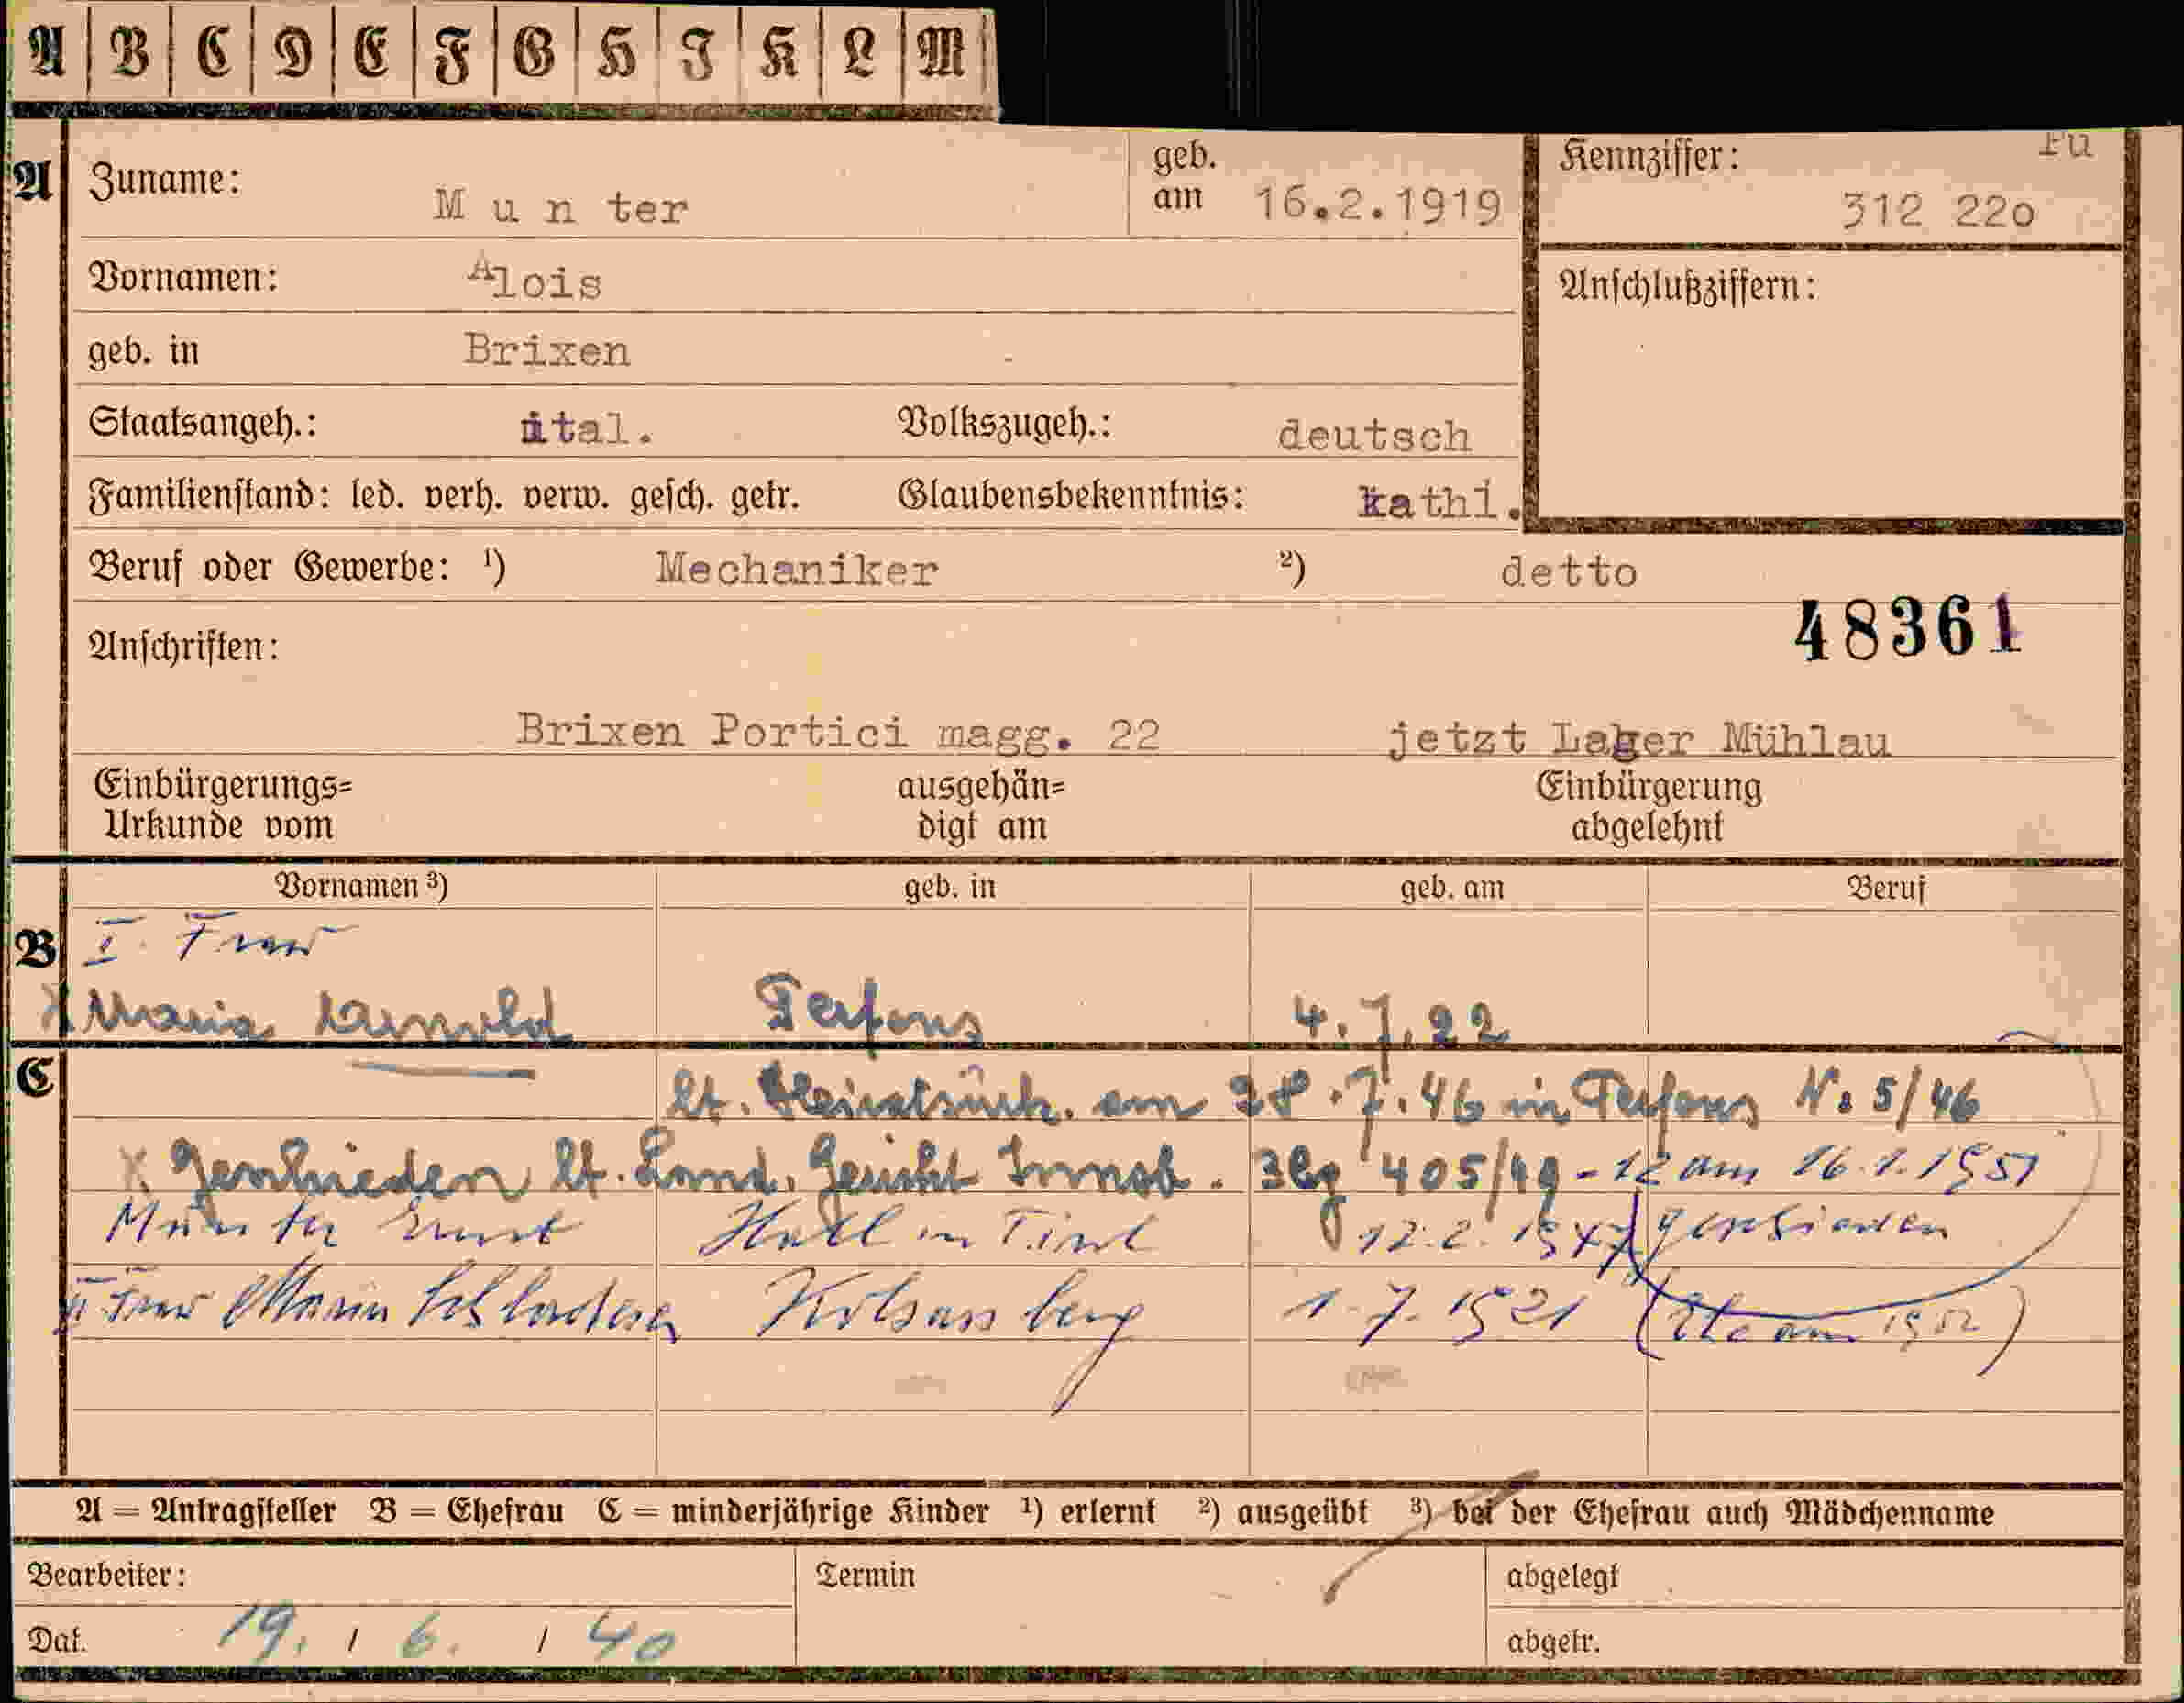 A B C D E F G H I K L M
A Zuname: Munter geb. am 16.2.1919 Kennziffer: 312 22o
Vornamen: Alois Anschlußziffern:
geb. in Brixen
Staatsangeh.: ital. Volkszugeh.: deutsch
Familienstand: led. verh. verw. gesch. getr. Glaubensbekenntnis: kath.
Beruf oder Gewerbe: ¹) Mechaniker ²) detto
48361
Anschriften:
Brixen Portici magg. 22 jetzt Lager Mühlau
Einbürgerungs= Urkunde vom ausgehän= digt am Einbürgerung abgelehnt
Vornamen ³) geb. in geb. am Beruf
B I. Frau
X Maria Arnold Terfens 4.7.22
C lt. Heiratsurk. am 28.7.46 in Terfens Nr. 5/46
X Geschieden lt. Land. Gericht Innsb. 3 Cg 405/49 - 12 am 16.1.1951
Munter Ernst Hall in Tirol 12.2.1947 geschieden
II Frau Maria Kolsassberg 1.7.1921 1952)
A = Antragsteller B = Ehefrau C = minderjährige Kinder ¹) erlernt ²) ausgeübt ³) bei der Ehefrau auch Mädchenname
Bearbeiter: Termin abgelegt
Dat. 19. / 6. / 40 abgetr.